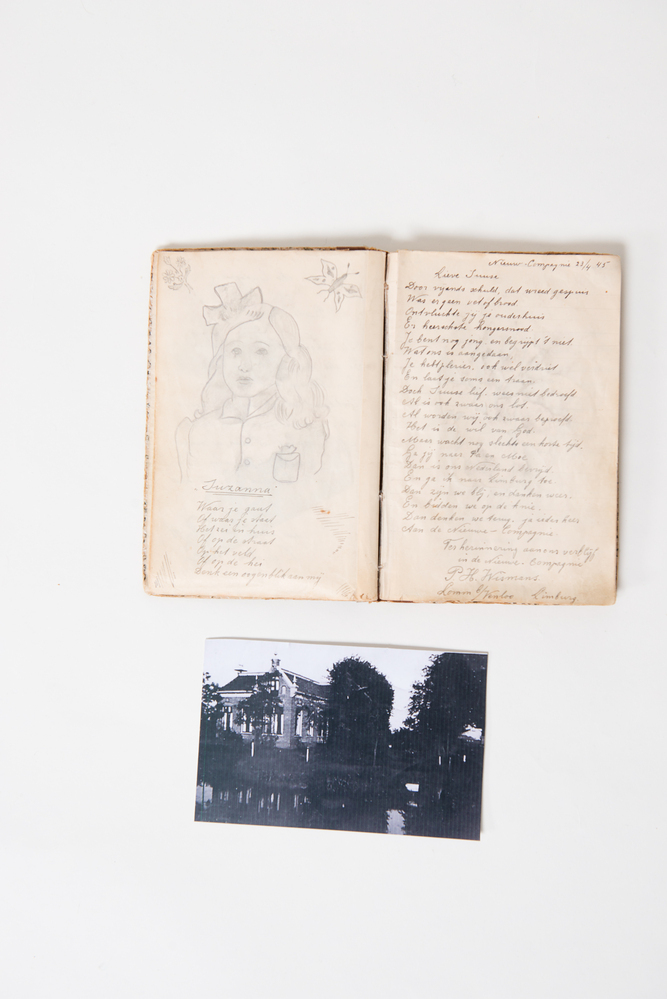 Suzanna
Waar je gaat
Of waar je staat
Of op de straat
Op het veld
Of op de hei
Denk een oogenblik aan mij
Nieuw-Compagnie 22/4 '45
Lieve Truuse
Door vijands schuld, dat wreed gespuis
Was er geen vet of brood
Ontvluchtte jij je ouderhuis
Er heerschte hongersnood.
Je bent nog jong en begrijpt 't niet.
Wat ons is aangedaan.
Je hebt plezier, ook wel verdriet
En laat je soms een traan.
Doch Truuse lief, wees niet bedroefd.
Al is ook zwaar ons lot.
Al worden wij ook zwaar beproefd.
Het is de wil van God.
Maar wacht nog slechts een korte tijd.
Ga jij naar Pa en Moe.
Dan is ons Nederland bevrijd.
En ga ik naar Limburg toe.
Dan zijn we blij en danken weer.
En bidden we op de knie.
Dan denken we terug, je ieder keer
Aan de Nieuwe-Compagnie.
Ter herinnering aan ons verblijf
in de Nieuwe-Compagnie
P. H.
Lomm Venloo Limburg